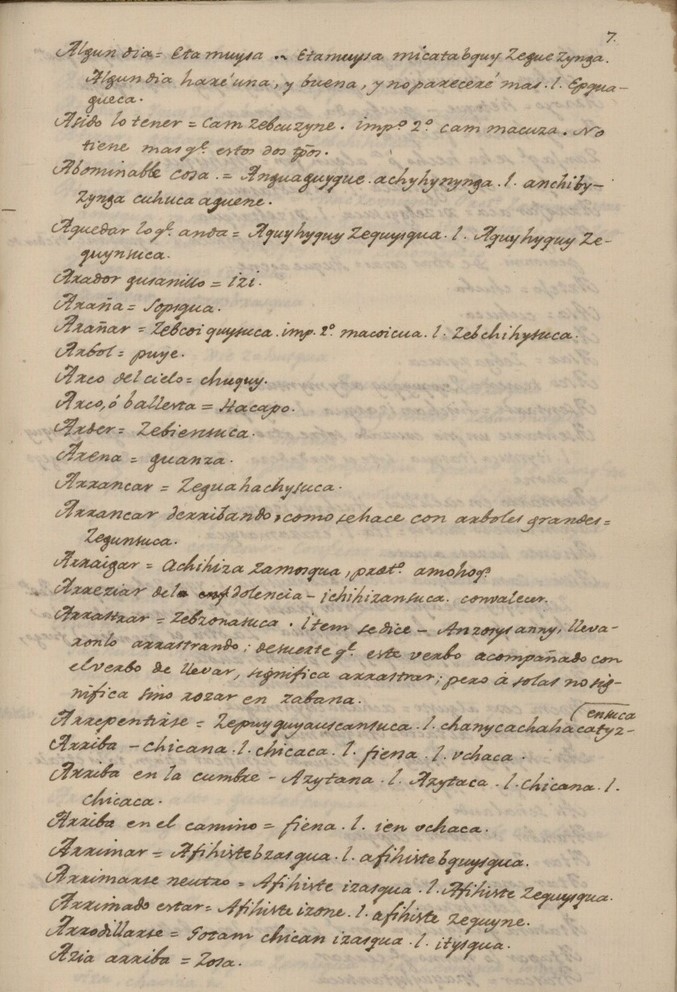 7.
Algun dia = Etamuysa .. Etamuysa micatabquy Zegue Zynga.
Algun dia haré una, y buena, y no pareceré mas. l. Epqua-
queca.
Asido lo tener = Cam Zebcuzyne. impº. 2º. cam macuza. No
tiene mas qe. estos dos tpōs.
Abominable Cosa. = Anguaguyque. achyhynynga. l. anchiby-
Zynga cuhuca aguene.
Aquedar lo qe. anda = Aquyhyquy Zequysqua. l. Aquyhyquy Ze-
quynsuca.
Arador gusanillo = izi.
Araña = Sopqua.
Arañar = Zebcoiquysuca. imp. 2º. macoicua. l. Zebchihysuca.
Arbol = puye.
Arco del cielo = chuquy.
Arco, ó ballesta = Hacapo.
Arder = Zebiensuca.
Arena = guanza.
Arrancar = Zeguahachysuca.
Arrancar derribando, como se hace con arboles grandes =
Zegunsuca.
Arraigar = Achihiza Zamosqua, præto. amohoqe
Arreziar de la dolencia - ichihizansuca. convalecer.
Arrastrar = Zebzonasuca. item se dice - Anzonys anny, lleva-
ronlo arrastrando; desuerte qe. este verbo acompañado con
el verbo de llevar, significa arrastrar; pero à solas no sig-
nifica sino rozar en zabana.
(ensuca
Arrepentirse = Zepuyquyauscansuca. l. chanycachahacatyz-
Arriba - chicana. l. chicaca. l. fiena. l. vchaca.
Arriba en la cumbre - Azytana. l. Azytaca. l. chicana. l.
chicaca.
Arriba en el camino = fiena. l. ien vchaca.
Arrimar = Afihistebzasqua. l. afihistebquysqua.
Arrimarse neutro = Afihiste izasqua. l. Afihiste Zequysqua.
Arrimado estar = Afihiste izone. l. afihista Zequyne.
Arrodillarse = Gotam chican izasqua. l. itysqua.
Azia arriba = Zosa.